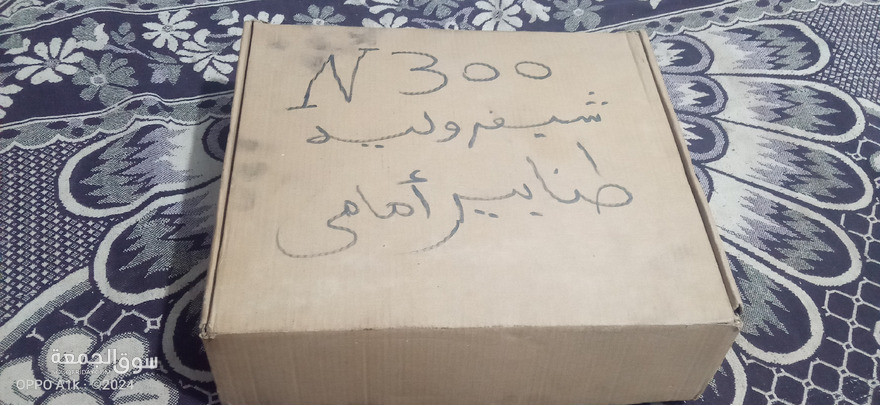 N 300
شيفروليه
طنابير أمامى
سوق الجمعة
OPPO A1k · ©2024